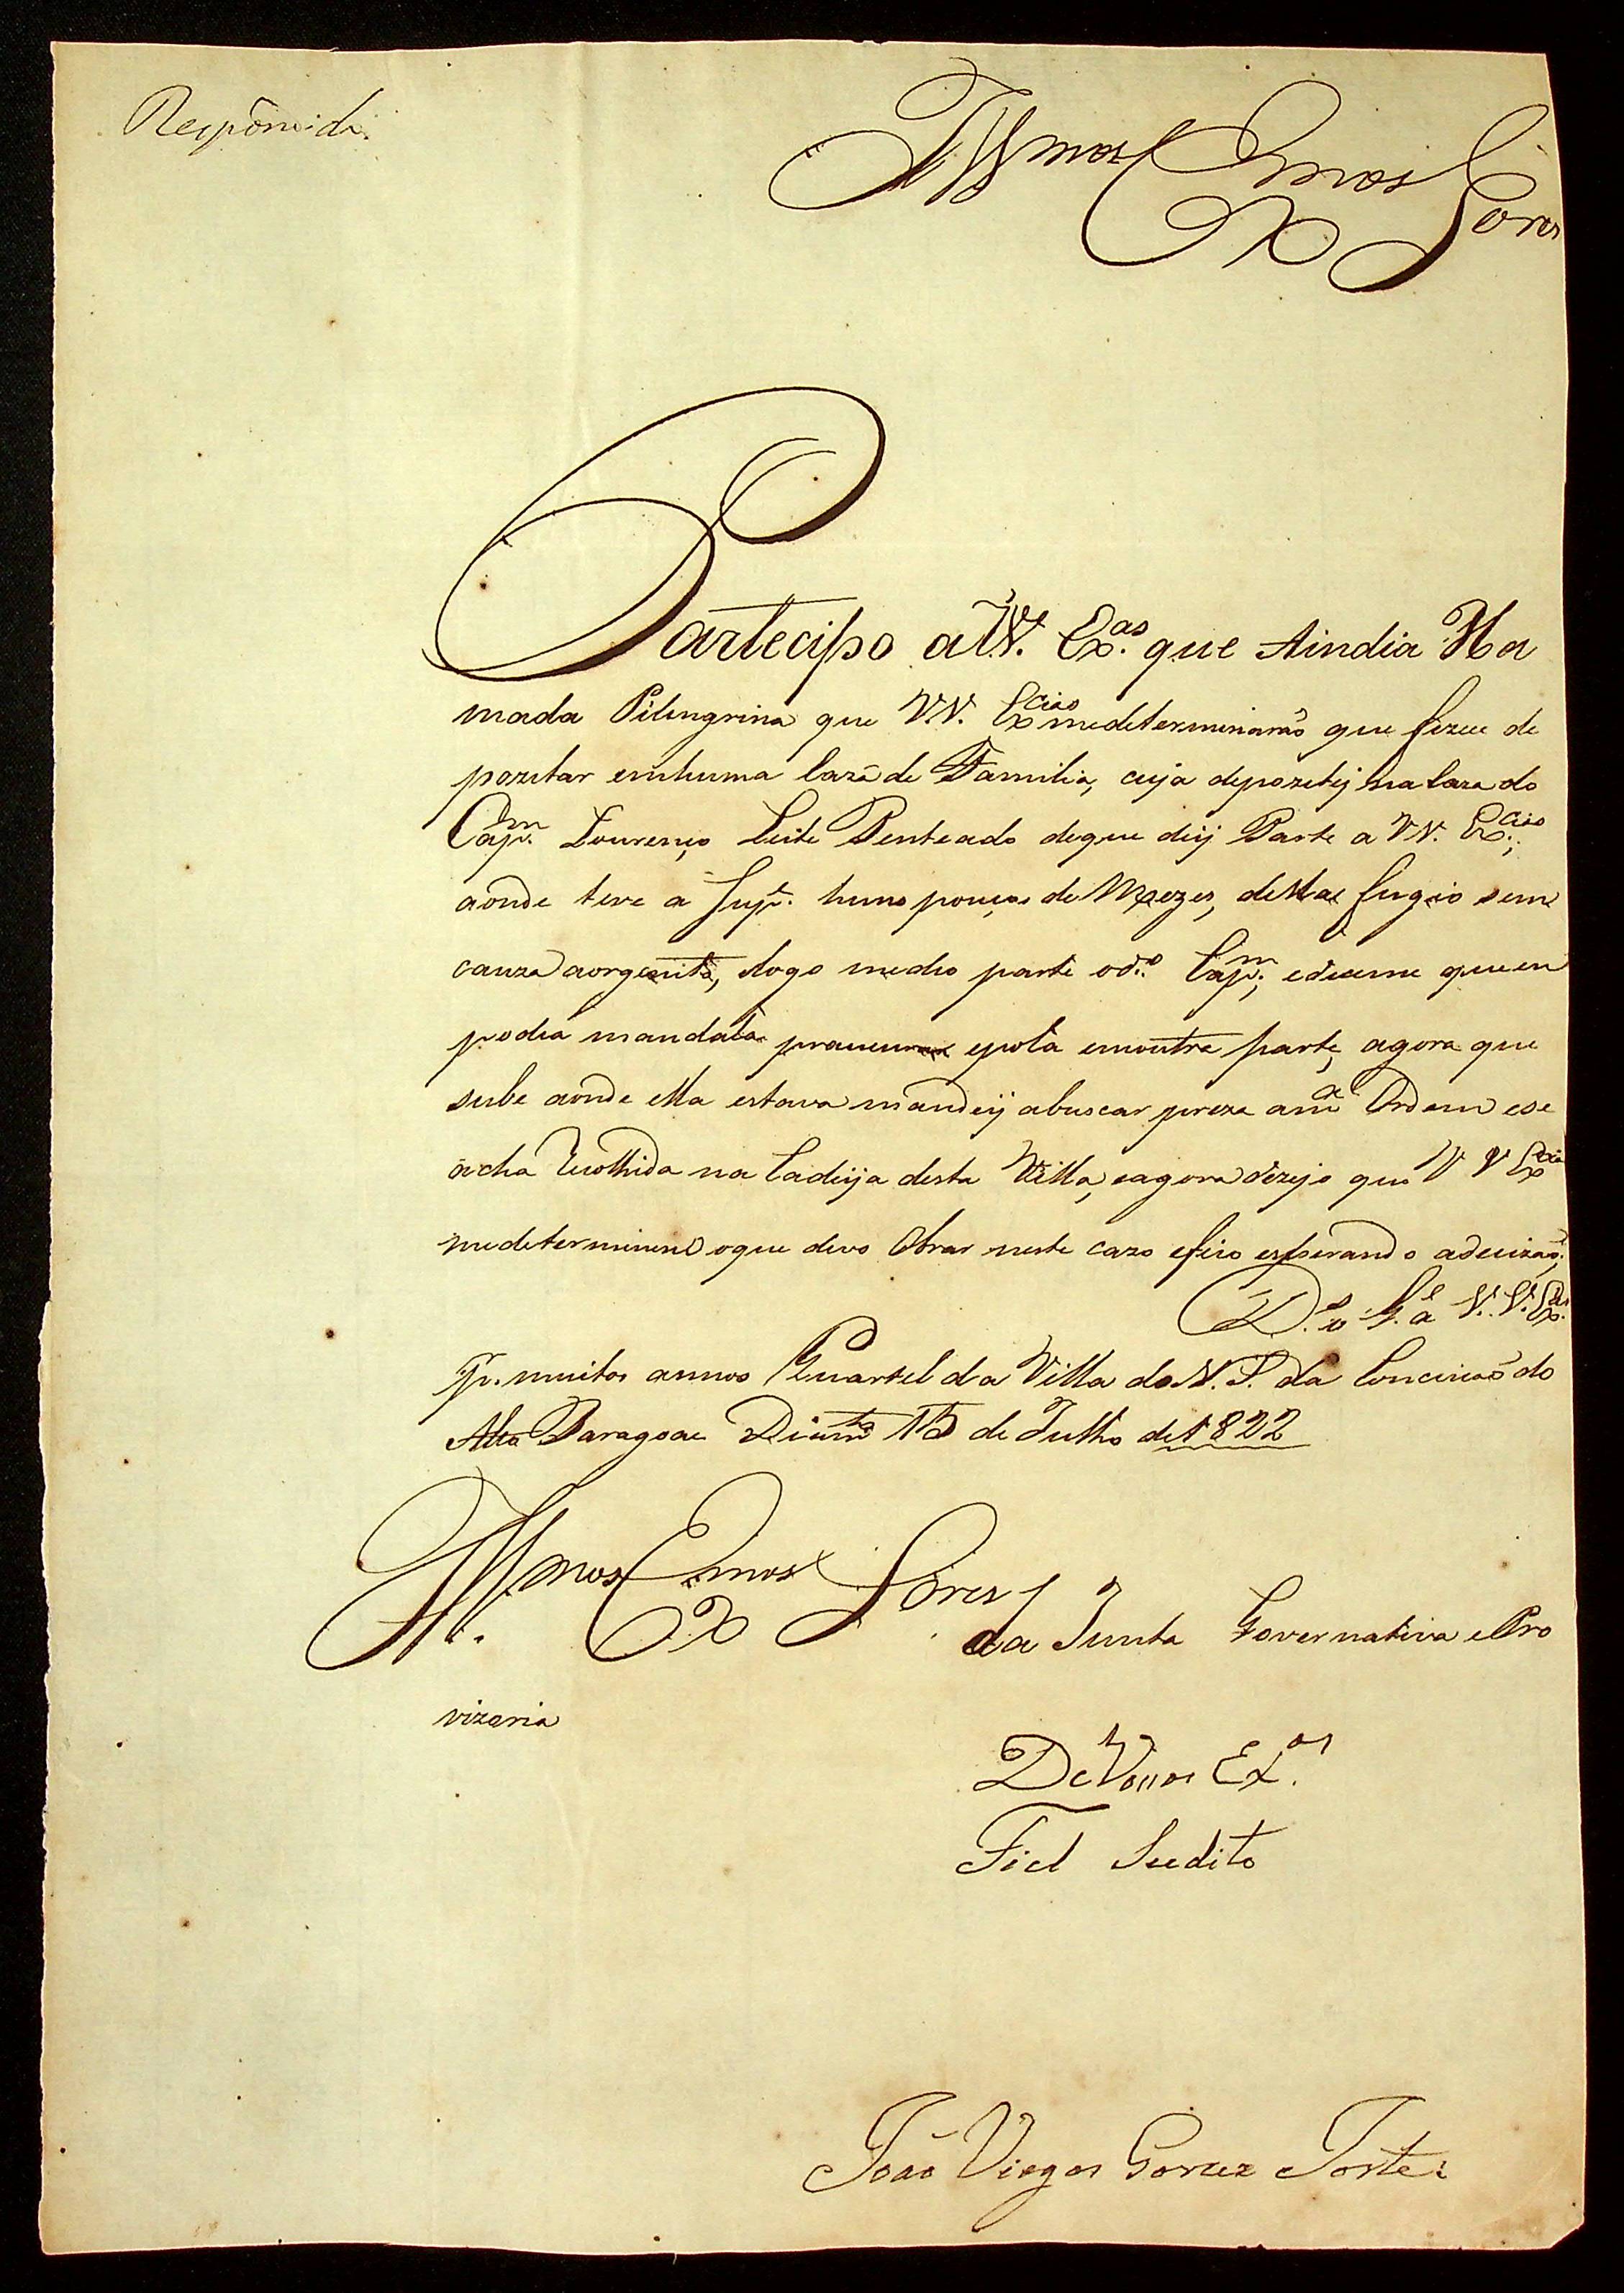 Respondida
Illmos Exmos Sores
Partecipo a VV. Exas. que Aindia Ha
mada Pilengrina que V.V. Excias medeterminarão que fizece de
pozitar emhuma Caza de Familia, cuja depozitej na Caza do
Capm. Lourenço Leite Penteado deque deij Parte a VV. Excias;
aonde teve a Supe. huns pouços de Mezes, dellas fugio sem
cauza aorgente, logo medeo parte odo. Capm; ediceme que eu
podia mandala procurar epola emoutra parte, agora que
sube aonde ella estava mandeij abuscar preza ama Ordem ese
acha Recolhida na Cadeija desta Villa, eagora dezejo que V V Excias
medeterminem oque devo Obrar neste cazo efico esperando adecizão;
Ds. Ge. a V.V. Excias.
pr. muitos annos Quartel da Villa de N. S. da Conceicão do
Alto Paragoai Diamno 15 de Julho de 1822
Illmos Exmos Sores
da Junta Governativa e Pro
vizoria
De Vossas Exas.
Fiel Sudito
João Viegas Fortes